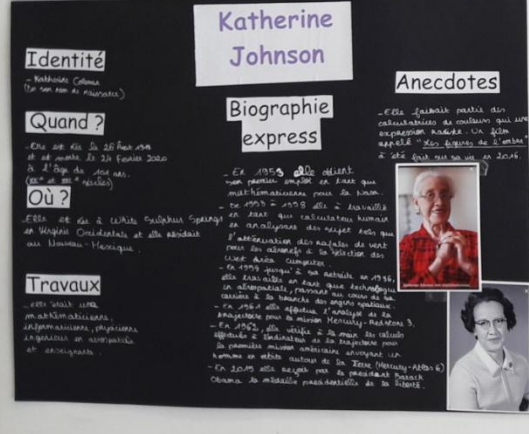 Katherine
Johnson
Identité
- Katherine Coleman
(de son nom de naissance)
Quand ?
- Elle est née le 26 Août 1918
et est morte le 24 Février 2020
à l'âge de 101 ans.
(XXe et XXIe siècles)
Où ?
- Elle est née à White Sulphur Springs
en Virginie Occidentale et elle résidait
au Nouveau-Mexique.
Travaux
- elle était une
mathématicienne,
informaticienne, physicienne
ingénieur en aérospatiale
et enseignante.
Biographie
express
- En 1953 elle obtient
son premier emploi en tant que
mathématicienne pour la Nasa.
- De 1953 à 1958 elle a travaillé
en tant que calculateur humain
en analysant des sujets tels que
l'atténuation des rafales de vent
pour les aéronefs à la section des
West Area Computer
- En 1959 jusqu'à sa retraite en 1986,
elle travailla en tant que technologue
en aérospatiale, passant au cours de sa
carrière à la branche des engins spatiaux.
- En 1961 elle effectua l'analyse de la
trajectoire pour la mission Mercury-Redstone 3.
- En 1962, elle vérifie à la main les calculs
effectués à l'ordinateur de la trajectoire pour
la première mission américaine envoyant un
homme en orbite autour de la Terre (Mercury-Atlas 6)
- En 2015 elle reçoit par le président Barack
Obama la médaille présidentielle de la liberté.
Anecdotes
- Elle faisait partie des
calculatrices de couleurs qui une
expression raciste. Un film
appelé "Les figures de l'ombre"
a été fait sur sa vie en 2016.